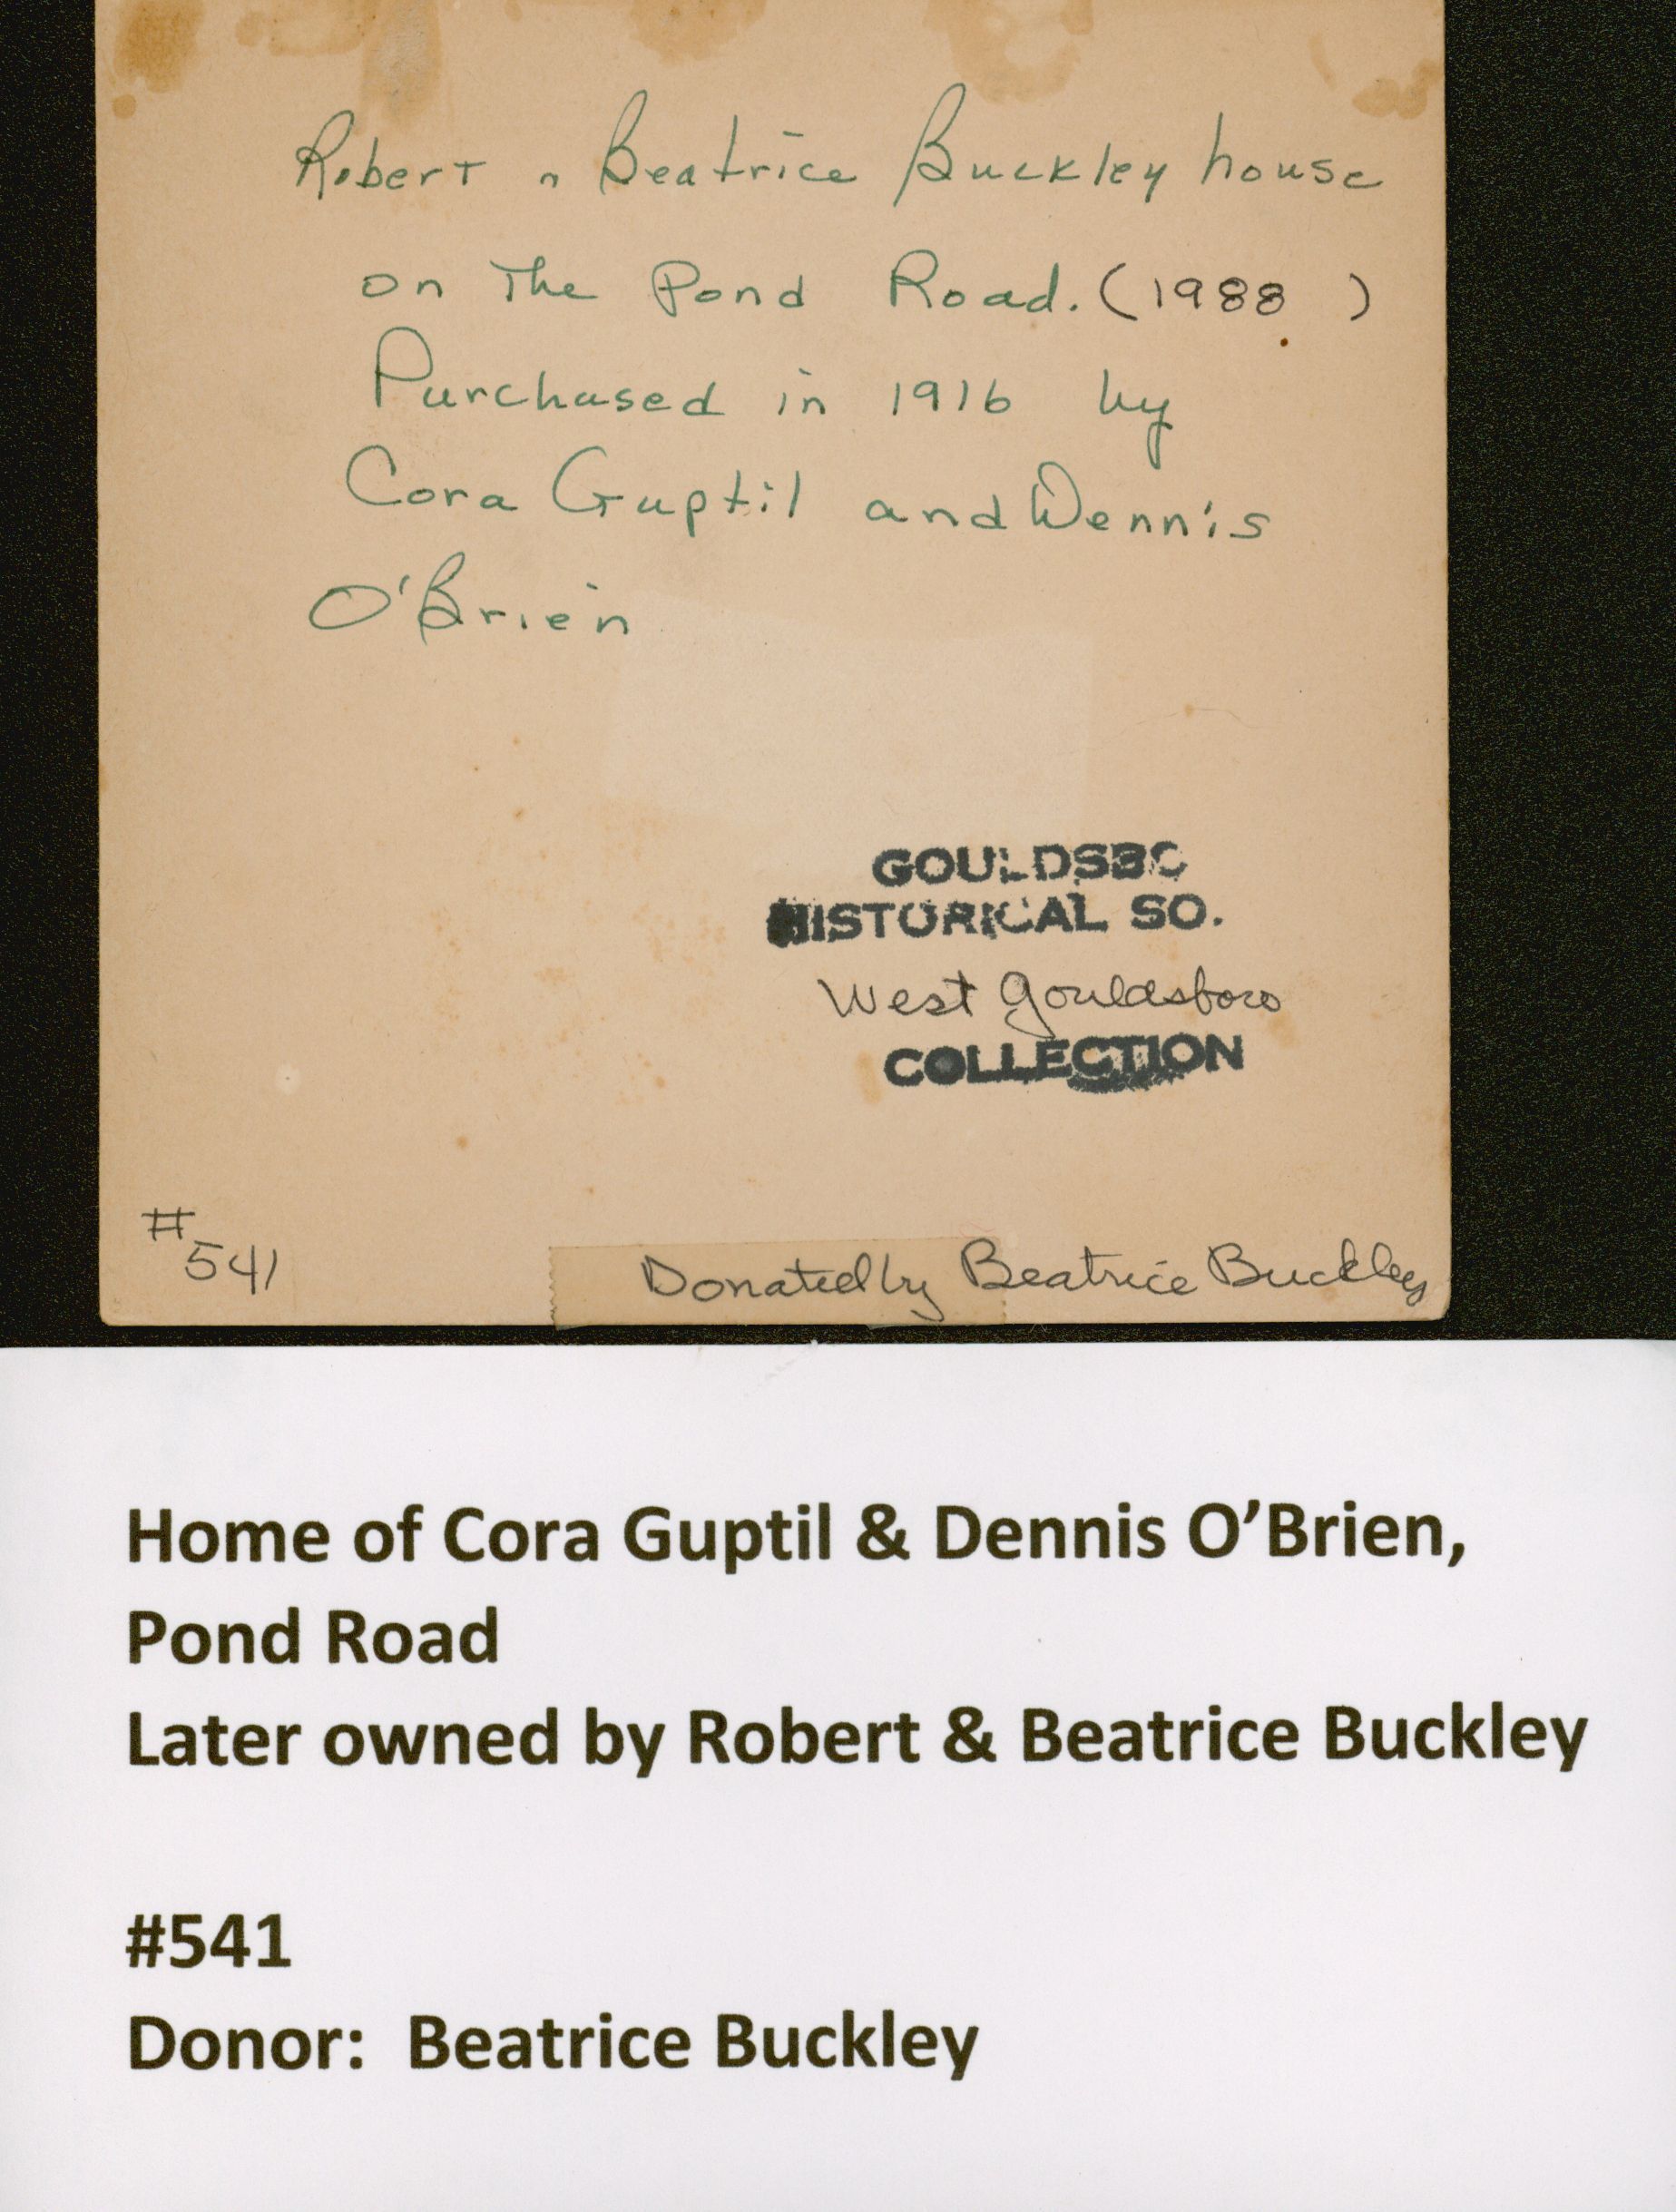 Robert n Beatrice Buckley house
on The Pond Road. (1988 )
Purchased in 1916 by
Cora Guptil and Dennis
O'Brien
GOULDSBO
HISTORICAL SO.
West Gouldsboro
COLLECTION
#
541
Donated by Beatrice Buckley
Home of Cora Guptil & Dennis O’Brien,
Pond Road
Later owned by Robert & Beatrice Buckley
#541
Donor: Beatrice Buckley